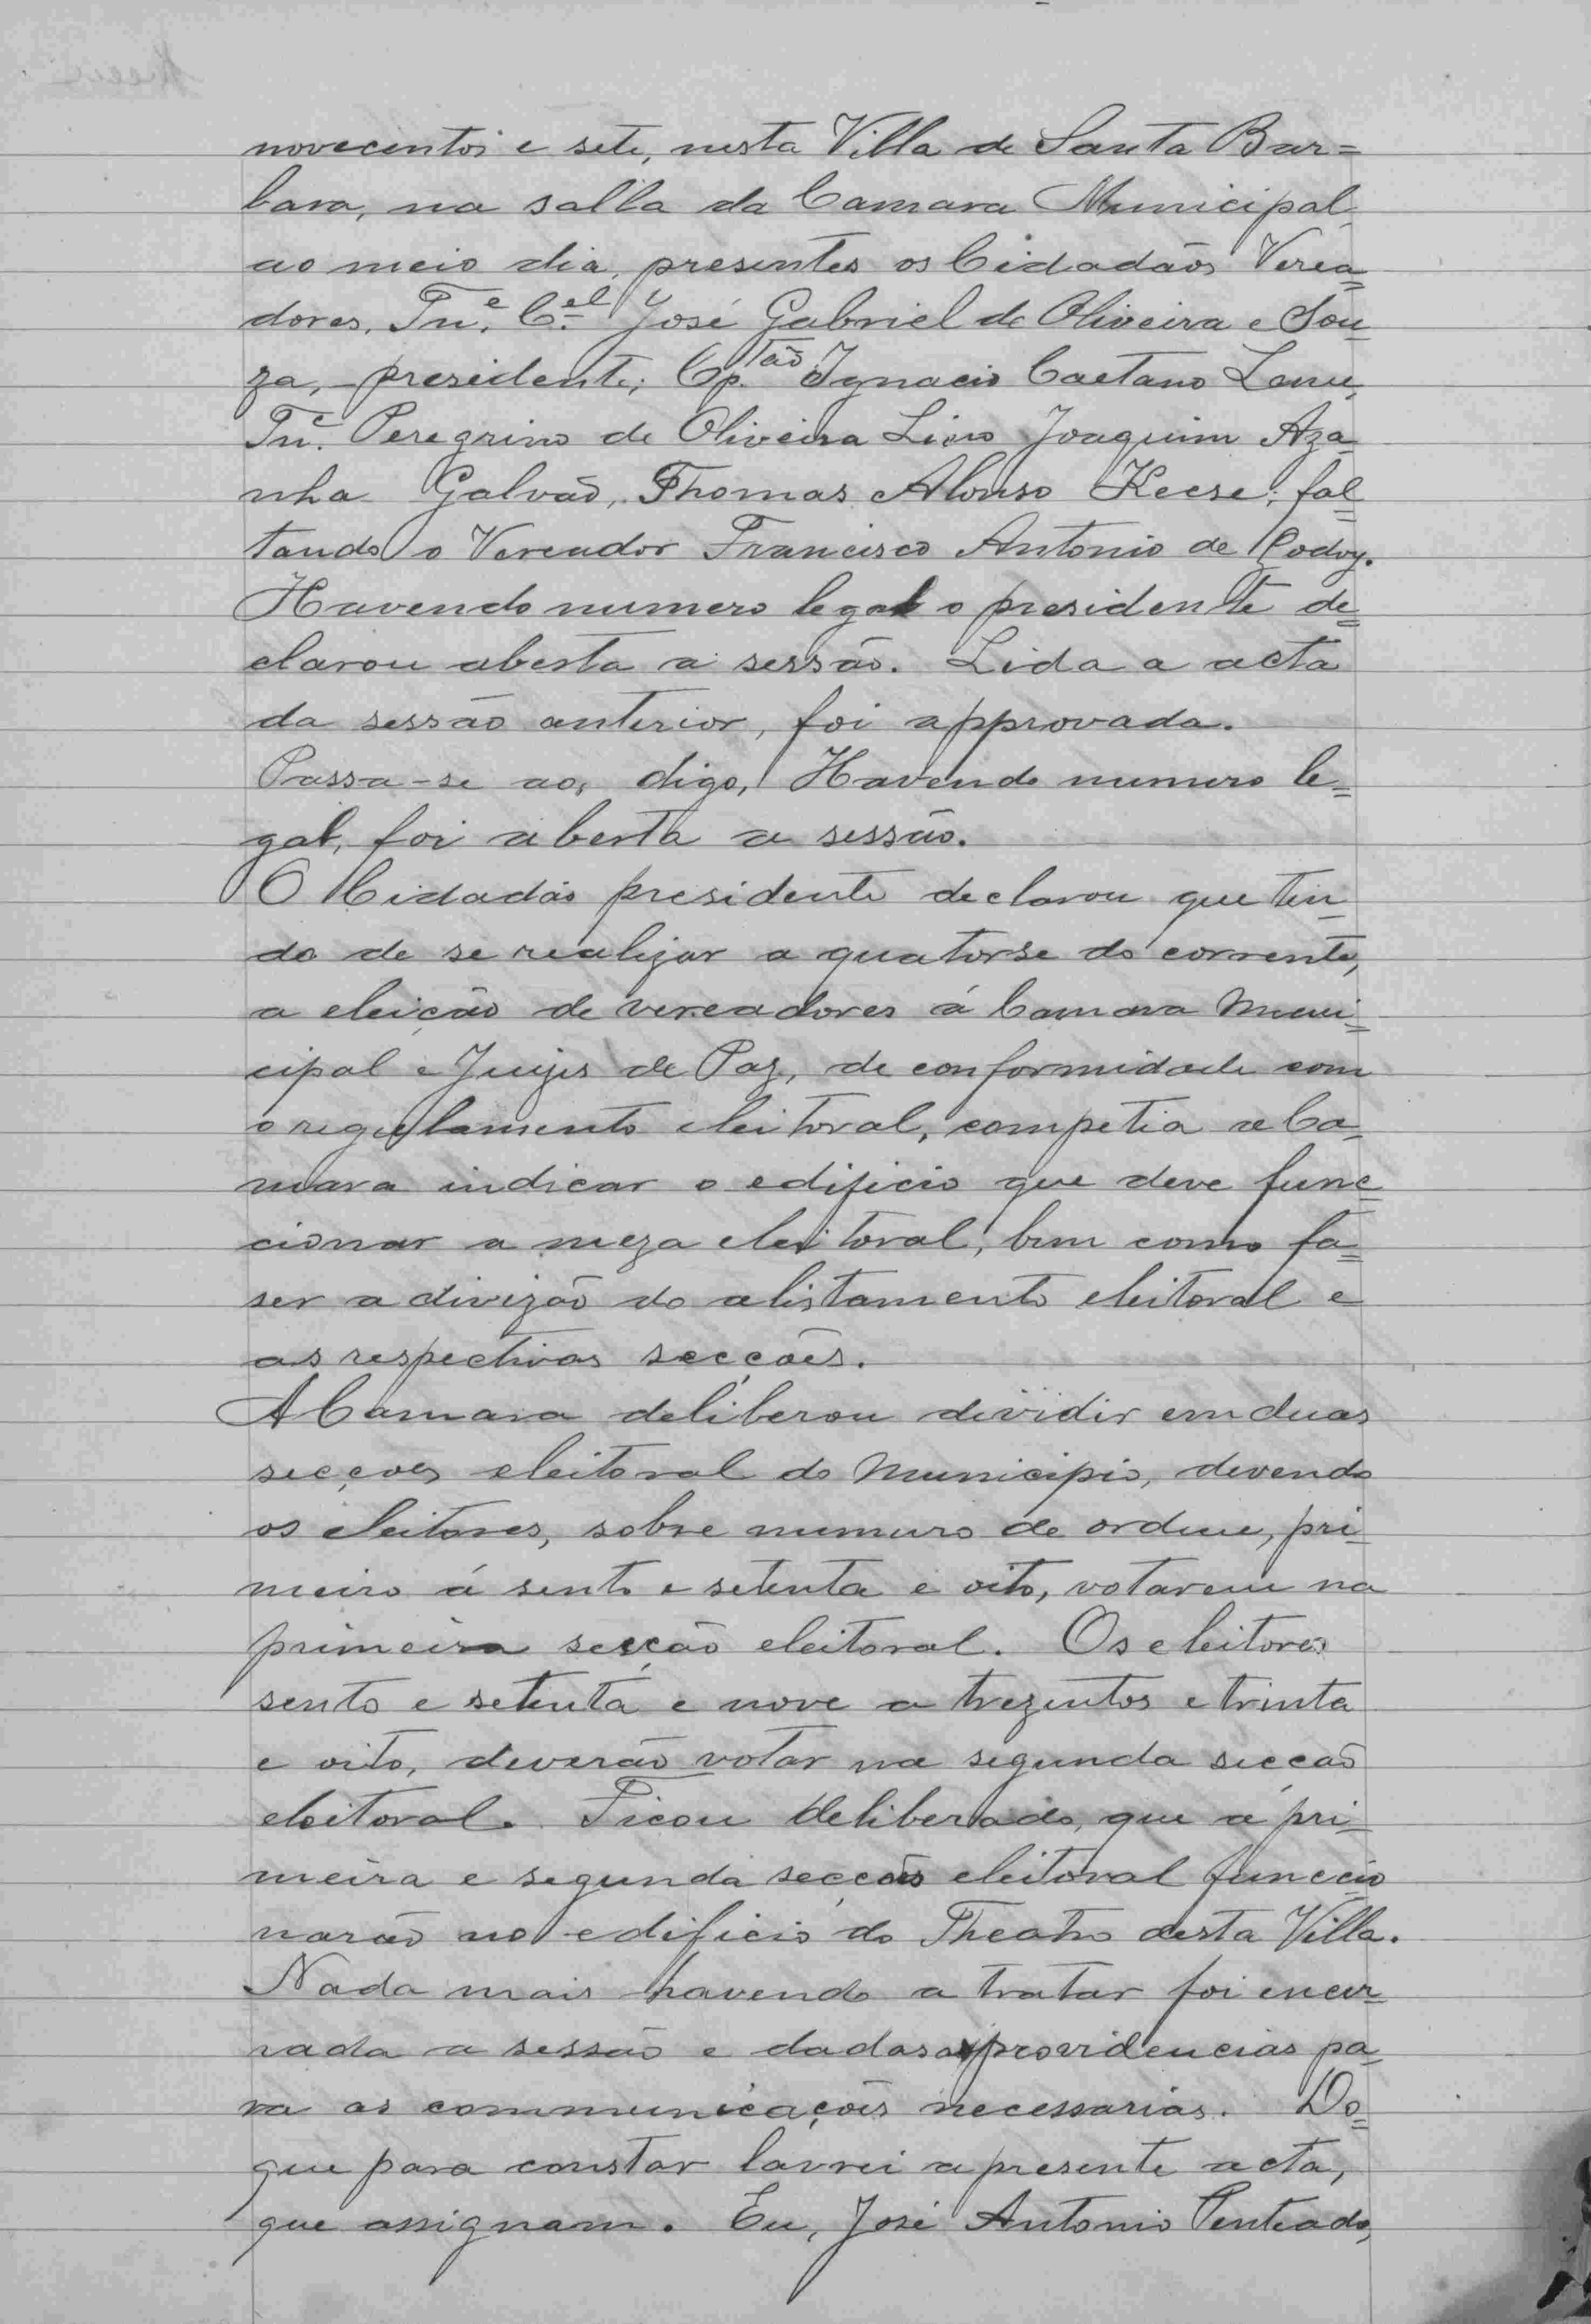 novecentos e sete, nesta Villa de Santa Bar=
bara, na salla da Camara Municipal
ao meio dia, presentes os Cidadãos Verea=
dores, Tn.e C.el José Gabriel de Oliveira e Sou=
za, - presidente; Cp.tão Ignacio Caetano Leme,
Tn.e Peregrino de Oliveira Lino Joaquim Aza=
nha Galvão, Thomas Alonso Keese; fal=
tando o Vereador Francisco Antonio de Godoy.
Havendo numero legal o presidente de=
clarou aberta a sessão. Lida a acta
da sessão anterior, foi approvada.
Passa-se ao, digo, Havendo numero le=
gal, foi aberta a sessão.
O Cidadão presidente declarou que ten=
do de se realizar a quatorse do corrente,
a eleição de vereadores á Camara Muni=
cipal e Juizes de Paz, de conformidade com
o regulamento eleitoral, competia a Ca=
mara indicar o edificio que deve func=
cionar a meza eleitoral, bem como fa=
ser a divizão do alistamento eleitoral e
as respectivas secções.
A Camara deliberou dividir em duas
secções eleitoral do Municipio, devendo
os eleitores, sobre numero de ordem, pri=
meiro á sento e setenta e oito, votarem na
primeira secção eleitoral. Os eleitores
sento e setenta e nove a trezentos e trinta
e oito, deverão votar na segunda secção
eleitoral. Ficou deliberado, que a pri=
meira e segunda secções eleitoral funccio
narão no edificio do Theatro desta Villa.
Nada mais havendo a tratar foi encer=
rada a sessão e dadas as providencias pa=
ra as communicações necessarias. Do=
que para constar lavrei a presente acta,
que assignam. Eu, José Antonio Penteado,